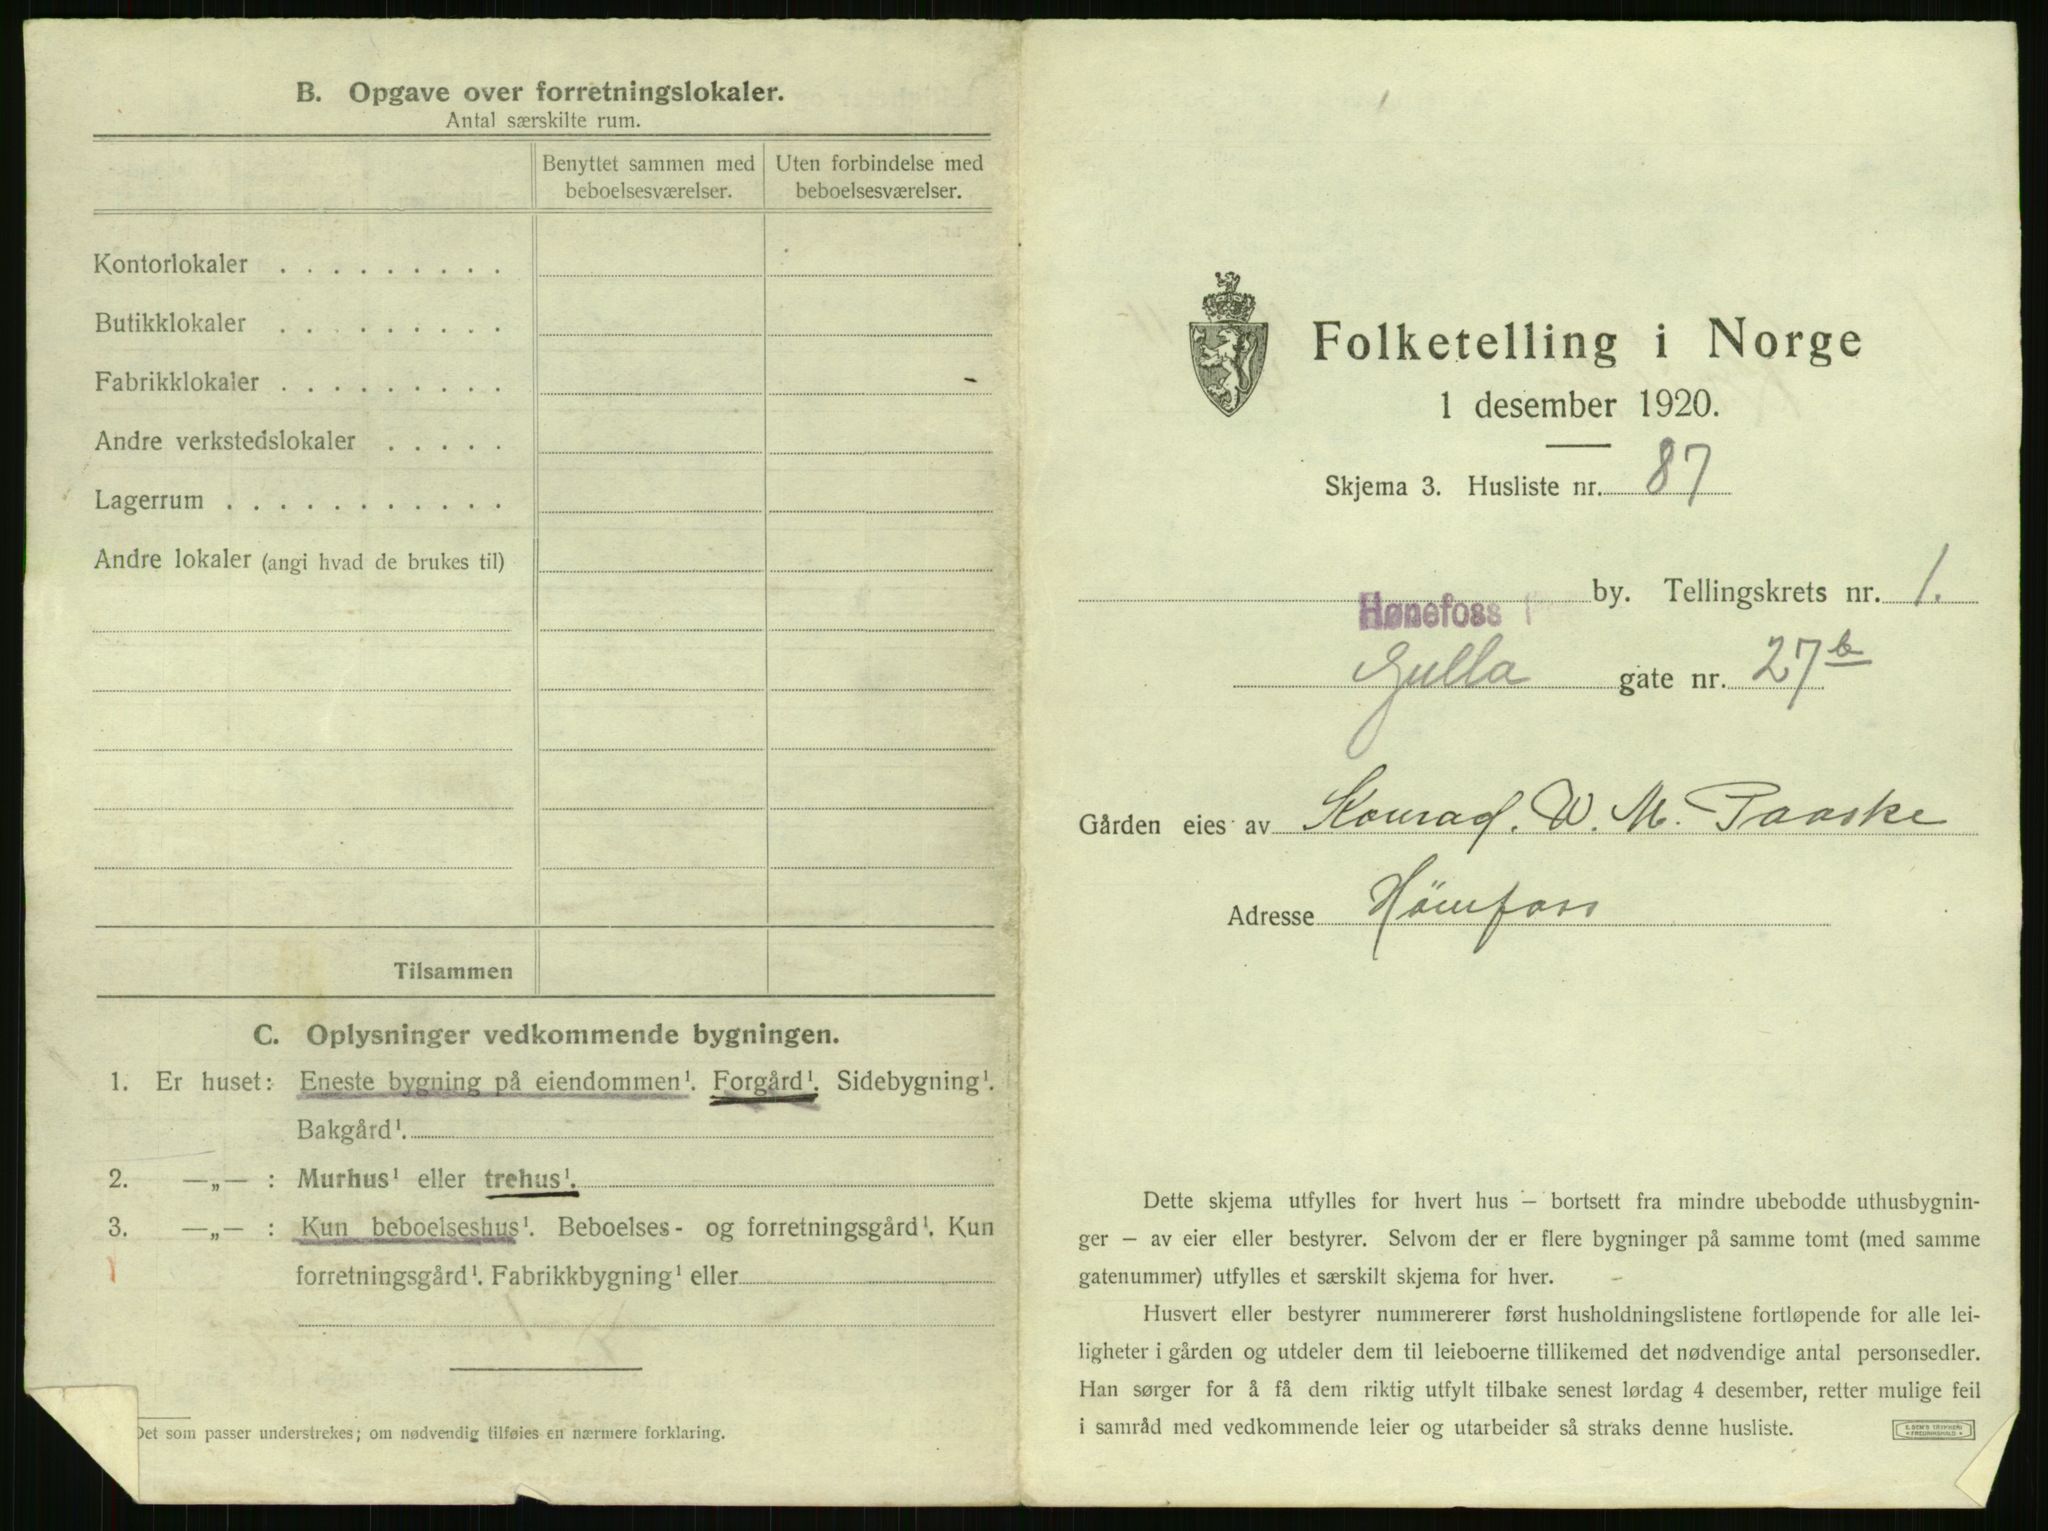 B. Opgave over forretningslokaler.
Antal særskilte rum.
Benyttet sammen med beboelsesværelser.
Uten forbindelse med beboelsesværelser.
Kontorlokaler . . . . . . . . .
Butikklokaler . . . . . . . . .
Fabrikklokaler . . . . . . . . .
Andre verkstedslokaler . . . . .
Lagerrum . . . . . . . . . . .
Andre lokaler (angi hvad de brukes til)
Tilsammen
C. Oplysninger vedkommende bygningen.
1. Er huset: Eneste bygning på eiendommen¹. Forgård¹. Sidebygning¹.
Bakgård¹.
2. —„— : Murhus¹ eller trehus¹.
3. —„— : Kun beboelseshus¹. Beboelses- og forretningsgård¹. Kun
forretningsgård¹. Fabrikkbygning¹ eller
Det som passer understrekes; om nødvendig tilføies en nærmere forklaring.
Folketelling i Norge
1 desember 1920.
Skjema 3. Husliste nr. 87
Hønefoss by. Tellingskrets nr. 1.
Gulla gate nr. 27 b
Gården eies av Konrad. W. M. Paaske
Adresse Hönefoss
Dette skjema utfylles for hvert hus – bortsett fra mindre ubebodde uthusbygnin-
ger – av eier eller bestyrer. Selvom der er flere bygninger på samme tomt (med samme
gatenummer) utfylles et særskilt skjema for hver.
Husvert eller bestyrer nummererer først husholdningslistene fortløpende for alle lei-
ligheter i gården og utdeler dem til leieboerne tillikemed det nødvendige antal personsedler.
Han sørger for å få dem riktig utfylt tilbake senest lørdag 4 desember, retter mulige feil
i samråd med vedkommende leier og utarbeider så straks denne husliste.